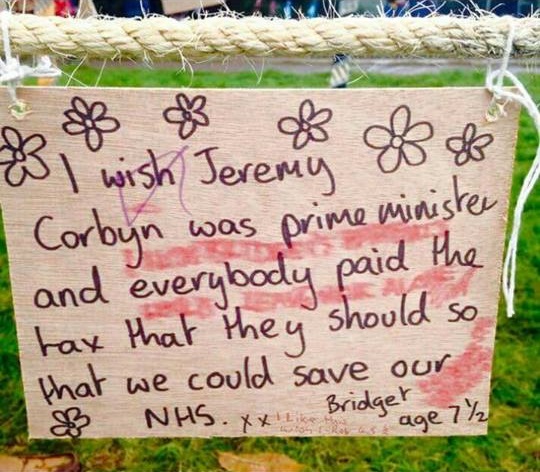 I wish Jeremy
Corbyn was prime minister
and everybody paid the
tax that they should so
that we could save our
NHS. xx Bridget
age 7 1/2
I Like this